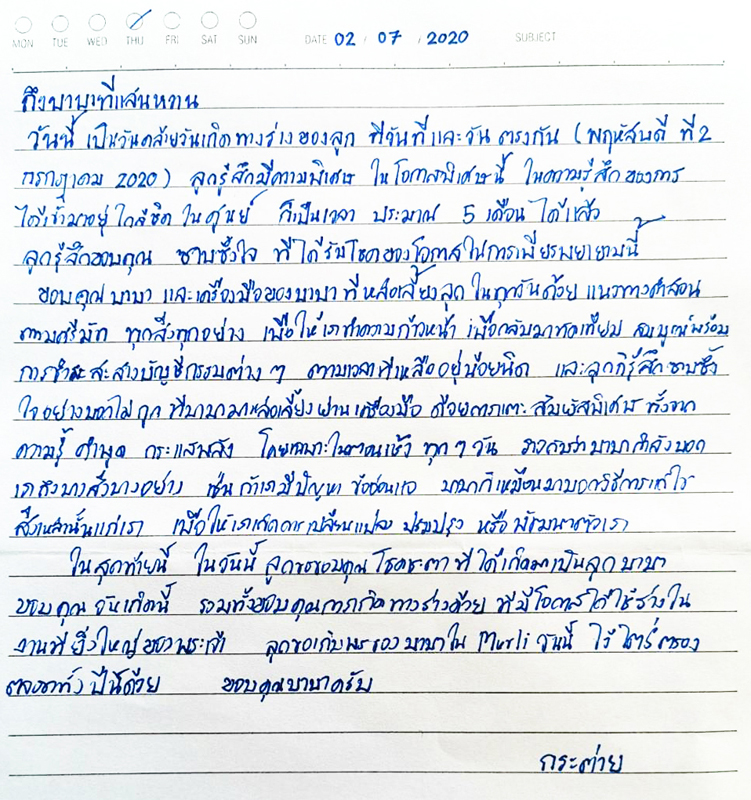 MON TUE WED THU FRI SAT SUN DATE 02 / 07 / 2020 SUBJECT
ถึงบาบาที่แสนหวาน
วันนี้ เป็นวันคล้ายวันเกิดทางร่างของลูก ที่วันที่และวัน ตรงกัน (พฤหัสบดี ที่ 2
กรกฎาคม 2020) ลูกรู้สึกมีความพิเศษ ในโอกาสพิเศษนี้ ในความรู้สึกของการ
ได้เข้ามาอยู่ใกล้ชิด ในศูนย์ ก็เป็นเวลา ประมาณ 5 เดือน ได้แล้ว
ลูกรู้สึกขอบคุณ ซาบซึ้งใจ ที่ได้รับโชคของโอกาสในการเพียรพยายามนี้
ขอบคุณบาบา และเครื่องมือของบาบา ที่หล่อเลี้ยงลูก ในทุกวันด้วย แนวทางคำสอน
ตามศรีมัท ทุกสิ่งทุกอย่าง เพื่อให้เราทำความก้าวหน้า เพื่อกลับมาทัดเทียม สมบูรณ์พร้อม
การชำระสะสางบัญชีกรรมต่าง ๆ ตามเวลาที่เหลืออยู่น้อยนิด และลูกก็รู้สึกซาบซึ้ง
ใจอย่างบอกไม่ถูก ที่บาบามาหล่อเลี้ยงผ่านเครื่องมือ ด้วยการแตะสัมผัสพิเศษ ทั้งจาก
ความรู้ คำพูด กระแสพลัง โดยเฉพาะในตอนเช้า ทุก ๆ วัน ราวกับว่าบาบากำลังบอก
เราถึงบางสิ่งบางอย่าง เช่น ถ้าเรามีปัญหา ข้ออ่อนแอ บาบาก็เหมือนมาบอกวิธีการแก้ไข
สิ่งเหล่านั้นแก่เรา เพื่อให้เราเกิดการเปลี่ยนแปลง ปรับปรุง หรือพัฒนาตัวเรา
ในสุดท้ายนี้ ในวันนี้ ลูกขอขอบคุณ โชคชะตา ที่ได้เกิดมาเป็นลูกบาบา
ขอบคุณ วันเกิดนี้ รวมทั้งขอบคุณการเกิดทางร่างด้วย ที่มีโอกาสได้ใช้ร่างใน
งานที่ยิ่งใหญ่ของพระเจ้า ลูกขอเก็บพรของบาบาใน Murli วันนี้ ไว้ไตร่ตรอง
ตลอดทั้งปีนี้ด้วย ขอบคุณบาบาครับ
กระต่าย